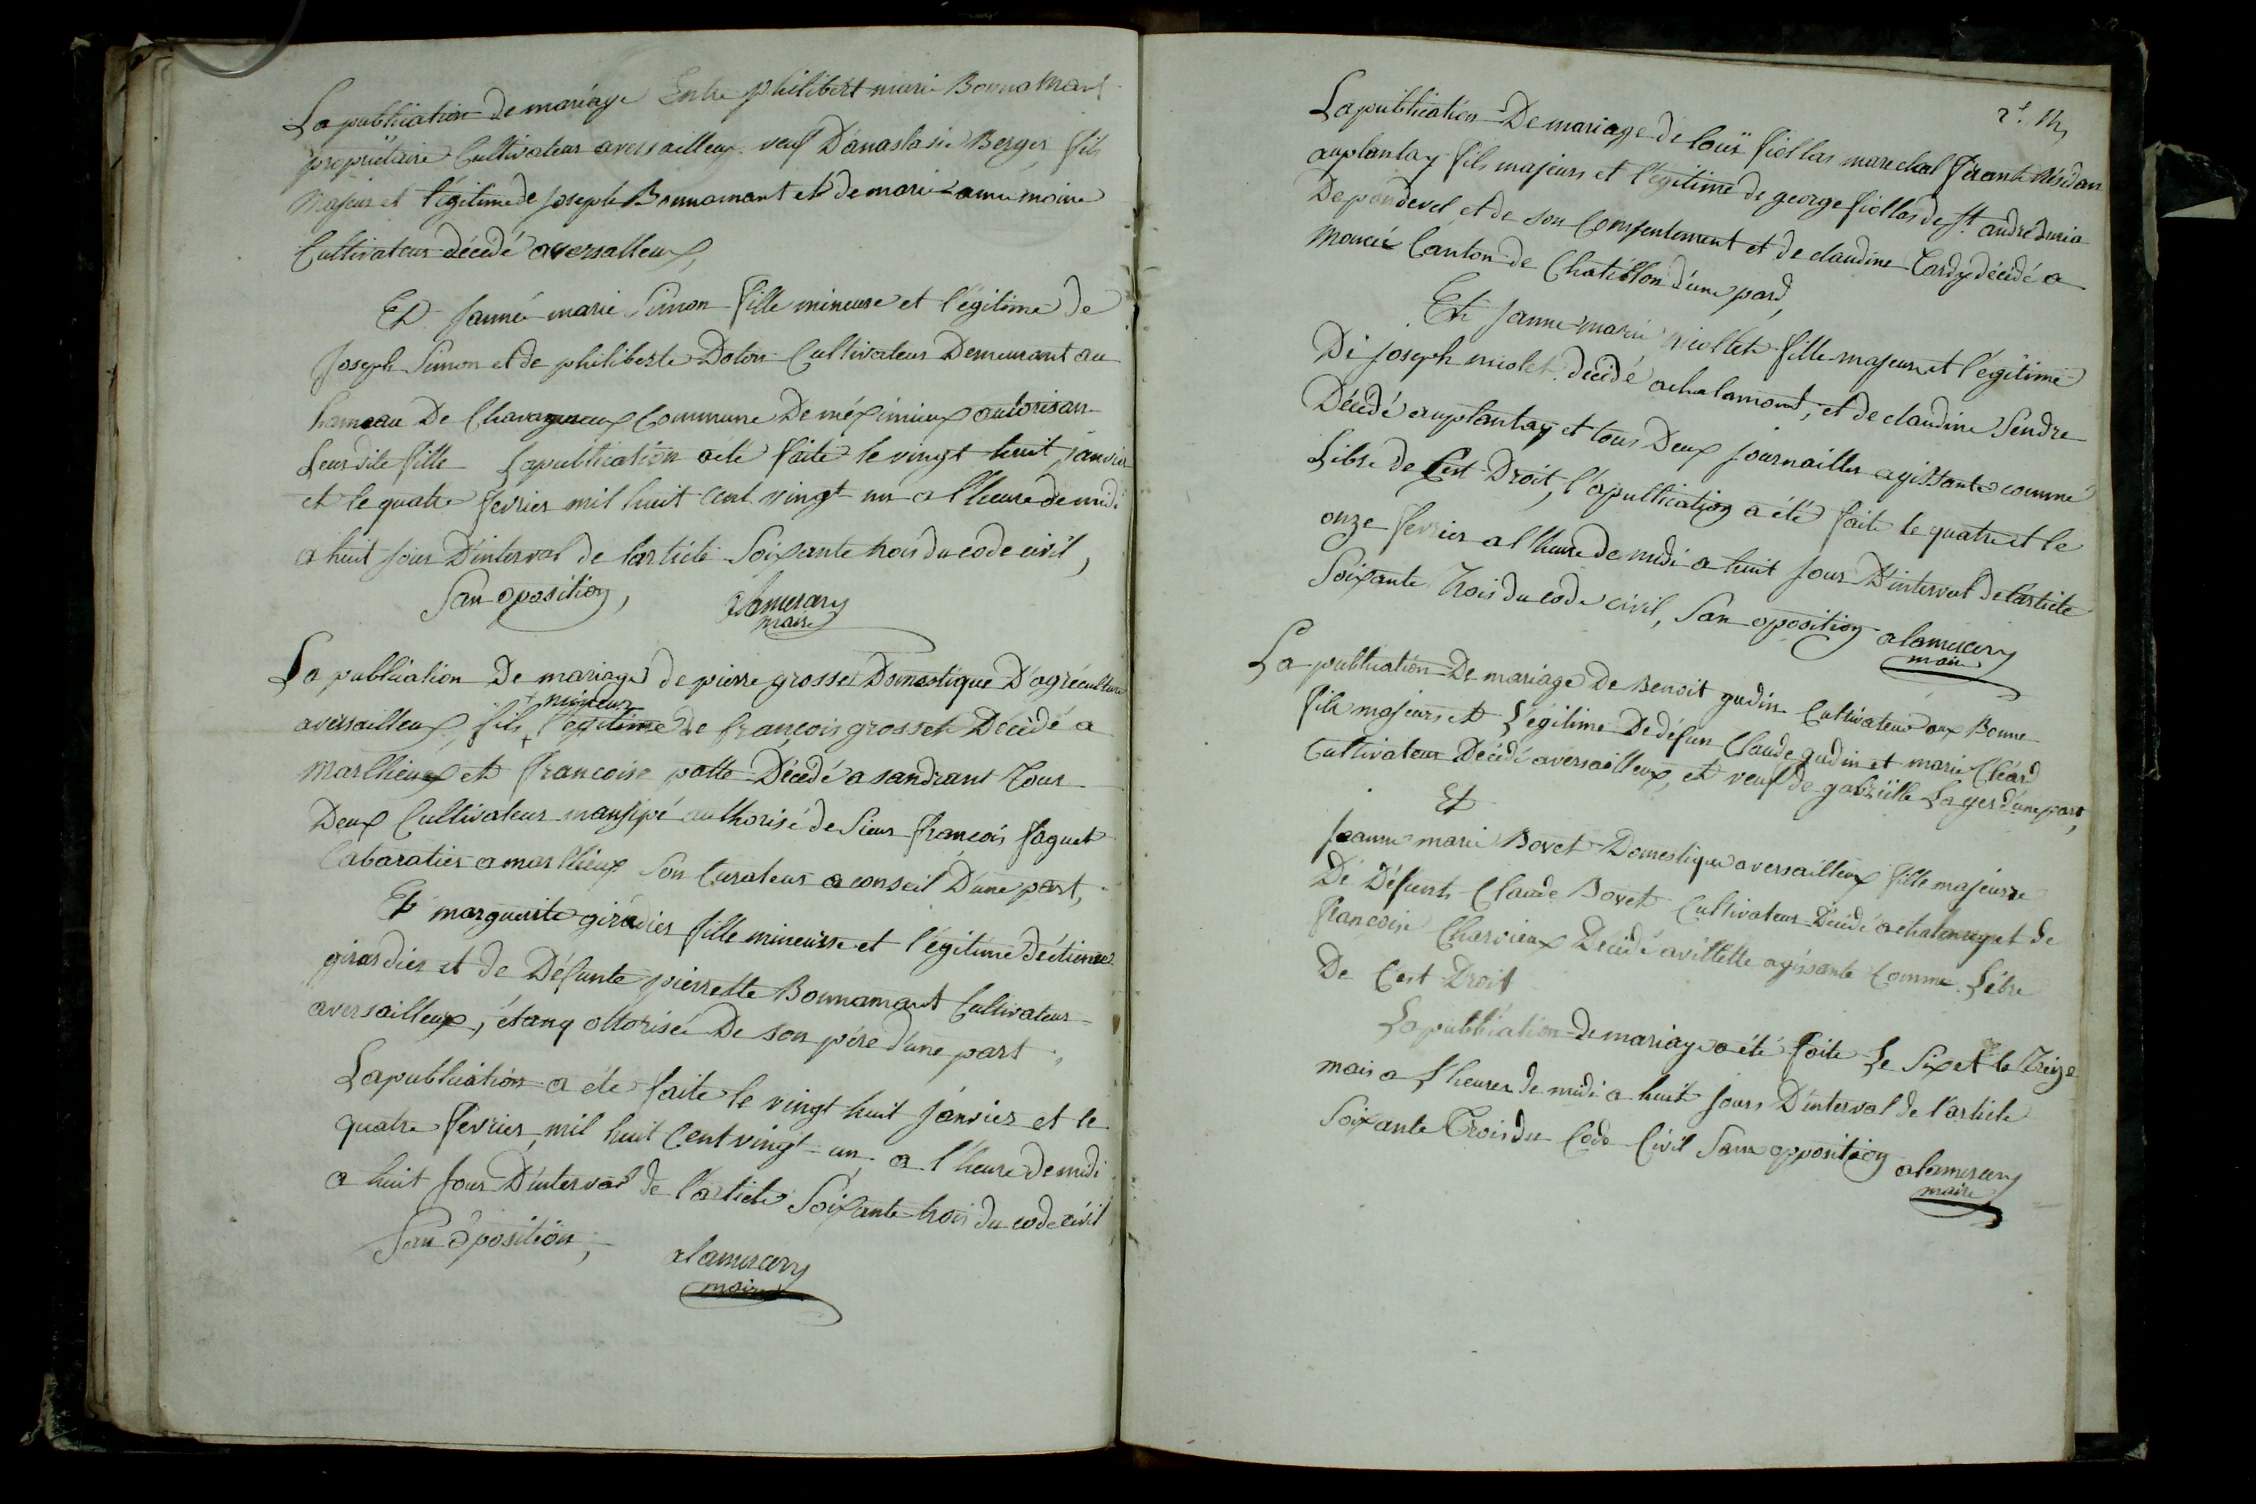 La publication de mariage Entre philibert marie Bonnamant
propriétaire Cultivateur aversailleux veuf D'anastasie Berger fils
majeur et légitime de Joseph Bonnamant et de marie anne moine
Cultivateur décédé aversalleux,
Et Janne marie Simon fille mineuse et légitime de
Joseph Simon et de philiberte Doton Cultivateur Demeurant au
hameau De Chavagneux Commune De méximieux autorisan
leur dite fille La publication a été faite le vingt huit janvier
et le quatre fevrier mil huit cent vingt un a l'heure de midi
a huit jour D'interval de larticle Soixante trois du code civil,
San oposition, alamercery
maire
La publication De mariage de pierre grosset Domestique D'agréculture
+ mineur
aversailleux, fils + légitime de françois grosset Décédé a
Marlhieux et francoise patte Décédé a sandrant Tous
Deux Cultivateur mansipé authorisé de Sieur françois faguet
Cabaratier a marlhieux Son Curateur a conseil D'une part,
Et marguerite girudier fille mineusse et légitime détienne
girardier et de Défunte pierrette Bonnamant Cultivateur
aversailleux, étang ottorisée De son pére d'une part,
La publication a éte faite le vingt huit Janvier et le
quatre fevrier, mil huit Cent vingt un a l'heure de midi
a huit jour D'interval de l'article Soixante trois du code civil
San oposition, alamercery
maire
La publication De mariage de louis fiollas marechal férante Résidan
auplantay fils majeurs et légitime de george fiollas de St. andré duria
De pondevel et de son Consentement et de claudine Tardy décédé a
moncée Canton de Chatillon d'une pard,
Et Janne marie niollet fille majeure et légitime
De joseph niolet décédé achalamont, et de claudine Sendre
Décédé auplantay et tous Deux journaillier agissante comme
Libre de Cest Droit, la publication a été faite le quatre et le
onze fevrier a l'heure de midi a huit jour D'interval de larticle
Soixante trois du code civil, San oposition alamercery
maire
La publication De mariage De Benoit gudin Cultivateur aux Bonne
fils majeurs et Légitime De défun Claude gudin et marie Cléard
Cultivateur Décédé aversailleux, et veuf de gabriëlle Layer d'une part,
Et
Jeanne marie Bovet Domestique aversailleux fille majeusse
De Défunt Claude Bovet Cultivateur Décédé achatenay et de
françoise Charvieux Décédé avillette agissante Comme Libre
De Cest Droit
La publication de mariage a été faite Le Six et le Treize
mais a l'heures de midi a huit jours D'interval de l'article
Soixante Trois du Code Civil Sans opposition alamercery
maire